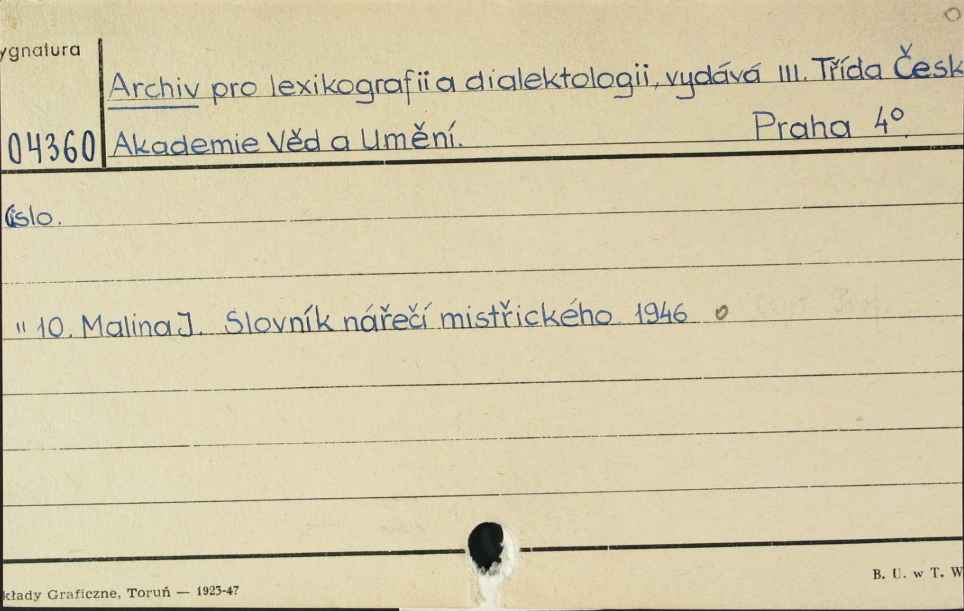 ygnatura
Archiv pro lexikografii a dialektologii, vydává III. Třída Česk
04360 Akademie Věd a Umění. Praha 4°.
Číslo.
" 10. Malina J. Slovník nářečí mistřického 1946 o
kłady Graficzne, Toruń — 1925-47
B. U. w T. W